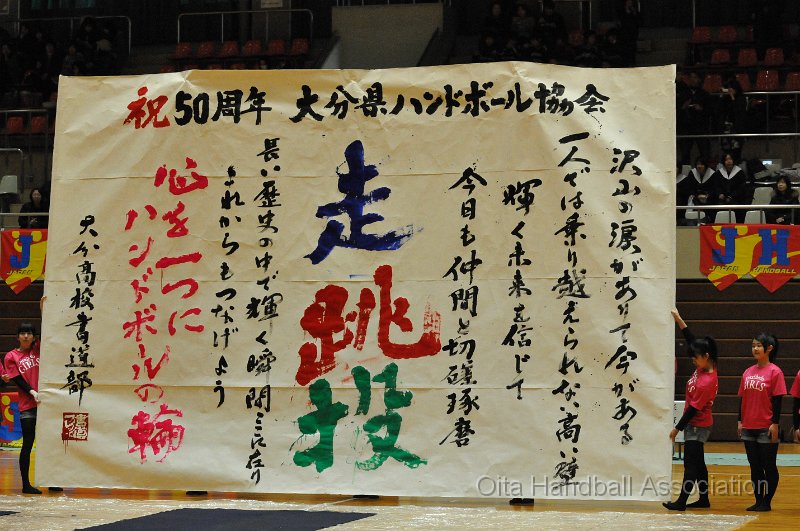 祝50周年 大分県ハンドボール協会
沢山の涙があって今がある
一人では乗り越えられない高い壁
輝く未来を信じて
今日も仲間と切磋琢磨
走
跳
投
長い歴史の中で輝く瞬間ここに在り
これからもつなげよう
心を一つに
ハンドボールの輪
大分高校書道部
JH
HANDBALL
GIRLS
Oita Handball Association